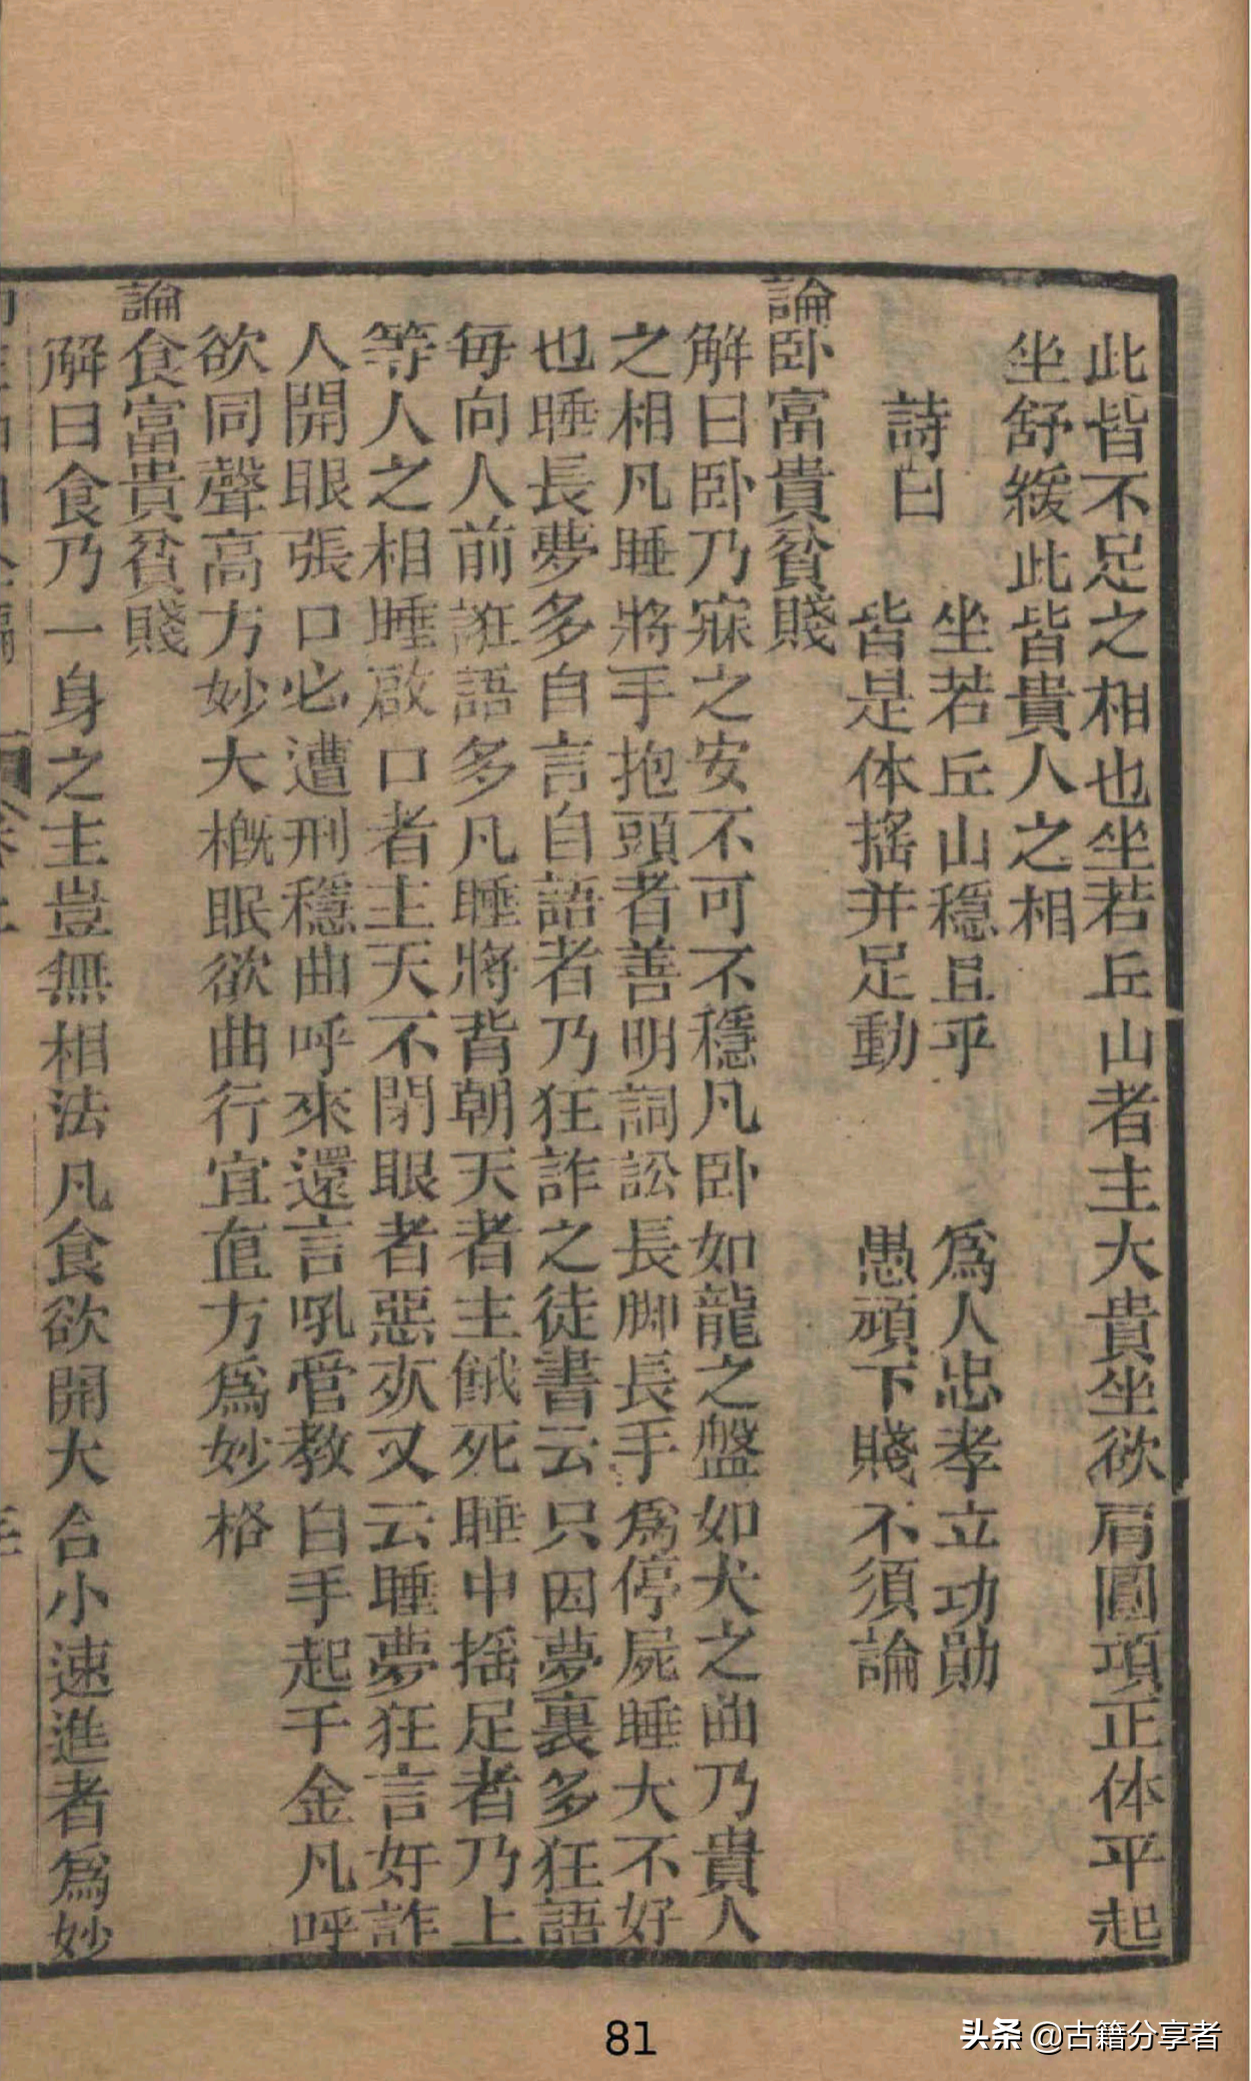 此皆不足之相也坐若丘山者主大貴坐欲肩圓項正体平起
坐舒緩此皆貴人之相
詩曰
坐若丘山穩且平 爲人忠孝立功勛
皆是体搖并足動 愚頑下賤不須論
論卧富貴貧賤
解曰卧乃寐之安不可不穩凡卧如龍之盤如犬之曲乃貴人
之相凡睡將手抱頭者善明詞訟長脚長手爲停屍睡大不好
也睡長夢多自言自語者乃狂詐之徒書云只因夢裏多狂語
每向人前誑語多凡睡將背朝天者主餓死睡中搖足者乃上
等人之相睡啟口者主夭不閉眼者惡死又云睡夢狂言好詐
人開眼張口必遭刑穩曲呼來還言吼管教白手起千金凡呼
欲同聲高方妙大概眠欲曲行宜直方爲妙格
論食富貴貧賤
解曰食乃一身之主豈無相法凡食欲開大合小速進者爲妙
81
头条 @古籍分享者